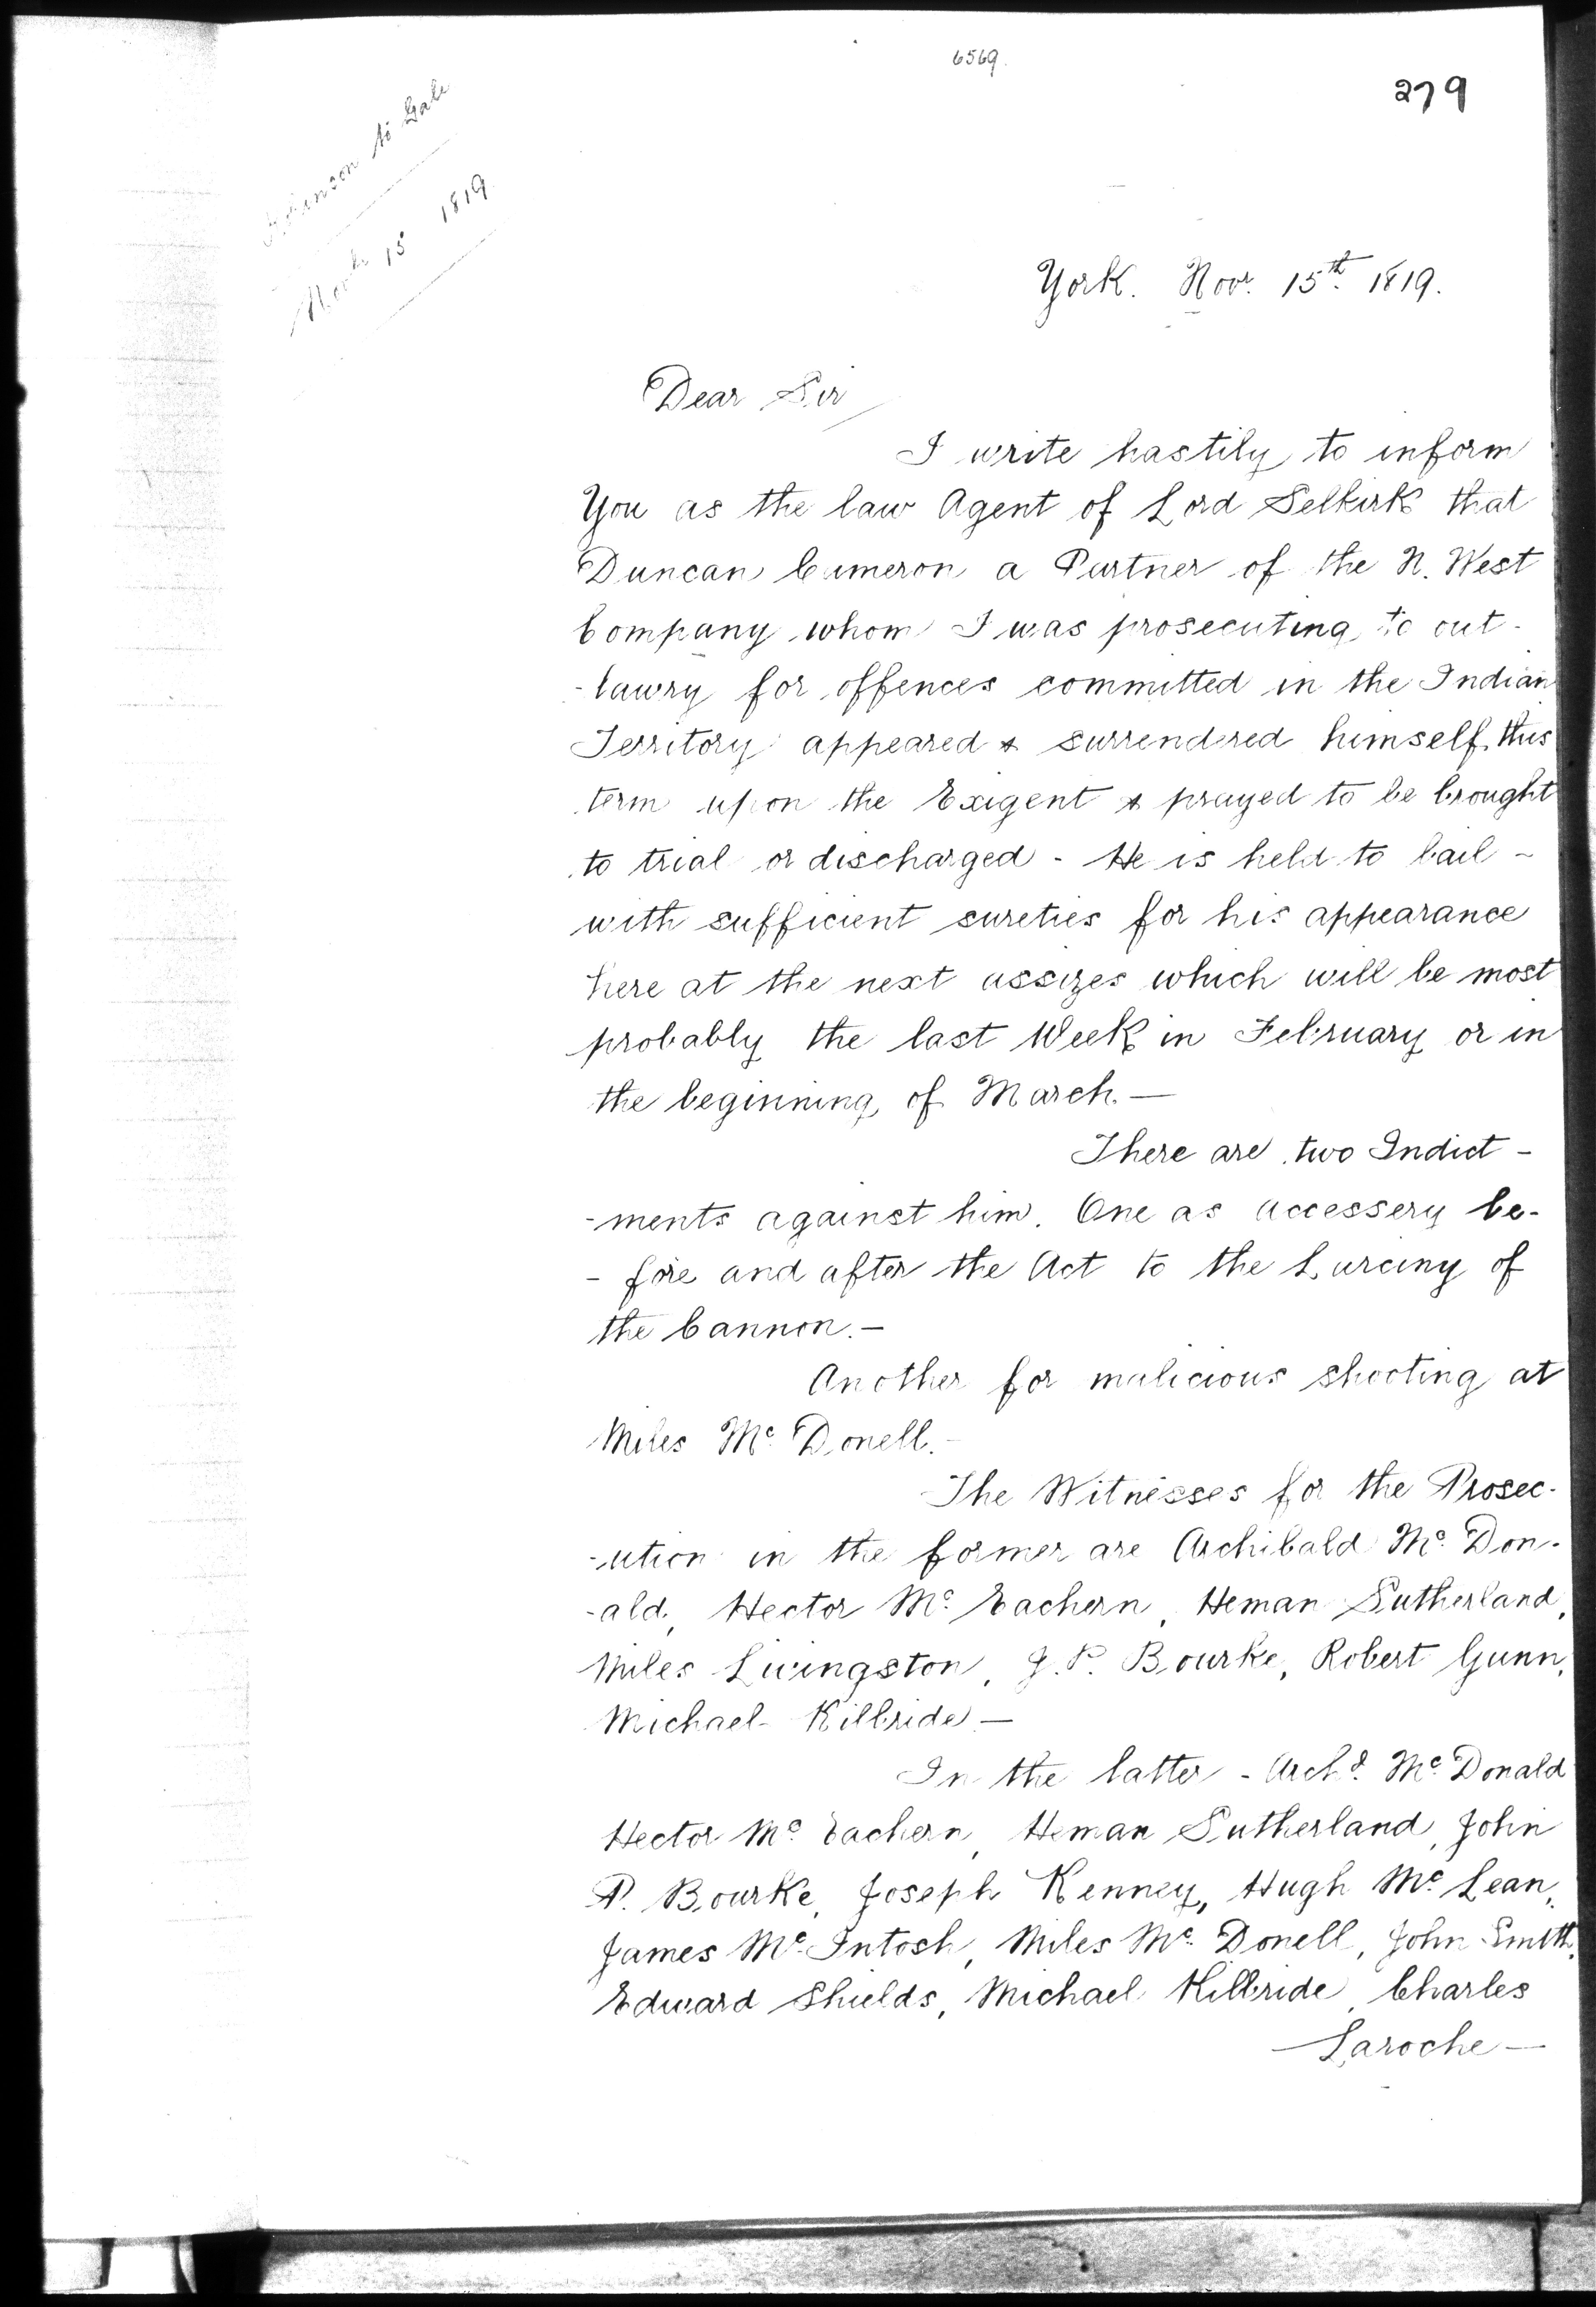 6569.
279
Robinson to Gale
15 1819
York. Novr. 15th. 1819.
Dear Sir
I write hastily to inform
You as the law Agent of Lord Selkirk that
Duncan Cameron a Partner of the N. West
Company whom I was prosecuting to out-
-lawry for offences committed in the Indian
Territory appeared & surrendered himself this
term upon the Exigent & prayed to be brought
to trial or discharged - He is held to bail -
with sufficient sureties for his appearance
here at the next assizes which will be most
probably the last Week in February or in
the beginning of March. —
There are two Indict -
-ments against him. One as accessery be-
- fore and after the Act to the Larciny of
the Cannon. —
Another for malicious shooting at
Miles Mc. Donell. -
The Witnesses for the Prosec-
-ution in the former are Archibald Mc. Don-
-ald, Hector Mc. Eachern, Heman Sutherland,
Miles Livingston, J. P. Bourke, Robert Gunn,
Michael Kilbride —
In the latter - Archd. Mc. Donald
Hector Mc. Eachern, Heman Sutherland, John
P. Bourke, Joseph Kenney, Hugh Mc. Lean,
James Mc. Intosh, Miles Mc. Donell, John Smith,
Edward Shields, Michael Kilbride, Charles
Laroche —